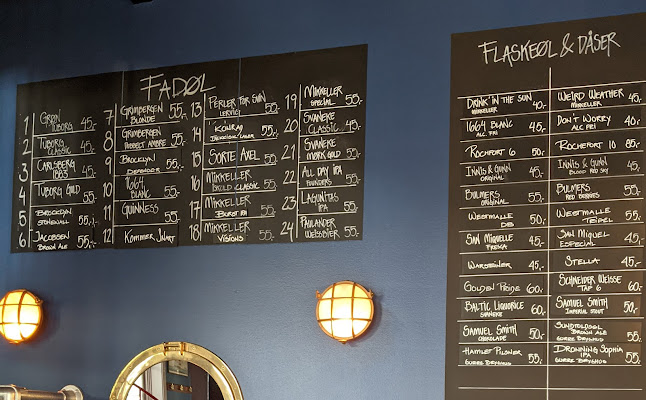 FADØL
1 GRØN TUBORG 45,-
2 TUBORG CLASSIC 45,-
3 CARLSBERG 1883 45,-
4 TUBORG GULD 55,-
5 BROOKLYN STONEWALL 55,-
6 JACOBSEN BROWN ALE 55,-
7 GRIMBERGEN BLONDE 55,-
8 GRIMBERGEN DOUBLE AMBRE 55,-
9 BROOKLYN DEFENDER 55,-
10 1664 BLANC 55,-
11 GUINNESS 55,-
12 KOMMER SNART
13 PERLER FOR SVIN LERVIG 55,-
14 KONRAD 55,-
15 SORTE AXEL 55,-
16 MIKKELLER CLASSIC 55,-
17 MIKKELLER BURST IPA 55,-
18 MIKKELLER VISIONS 55,-
19 MIKKELLER SPECIAL 55,-
20 SVANEKE CLASSIC 55,-
21 SVANEKE MØRK GULD 55,-
22 ALL DAY IPA FOUNDERS 55,-
23 LAGUNITAS IPA 55,-
24 PAULANER WEISSBIER 55,-
FLASKEØL & DÅSER
DRINK IN THE SUN 40,-
MIKKELLER
1664 BLANC 40,-
ALC FRI
ROCHFORT 6 50,-
INNIS & GUNN 45,-
ORIGINAL
BULMERS 55,-
ORIGINAL
WESTMALLE 50,-
DB
SAN MIQUELLE 45,-
FRESKA
WARSTEINER 45,-
GOLDEN PRIDE 60,-
BALTIC LIQUORICE 60,-
SVANEKE
SAMUEL SMITH 50,-
CHOKOLADE
HAMLET PILSNER 55,-
GURRE BRYGHUS
WEIRD WEATHER 45,-
MIKKELLER
DON'T WORRY 45,-
ALC FRI
ROCHEFORT 10 85,-
INNIS & GUNN 45,-
BLOOD RED SKY
BULMERS 55,-
RED BERRIES
WESTMALLE 55,-
TRIPEL
SAN MIGUEL 45,-
ESPECIAL
STELLA 45,-
SCHNEIDER WEISSE 60,-
TAP 6
SAMUEL SMITH 50,-
IMPERIAL STOUT
BROWN ALE 55,-
GURRE BRYGHUS
DROWNING SOPHIA 55,-
IPA
GURRE BRYGHUS